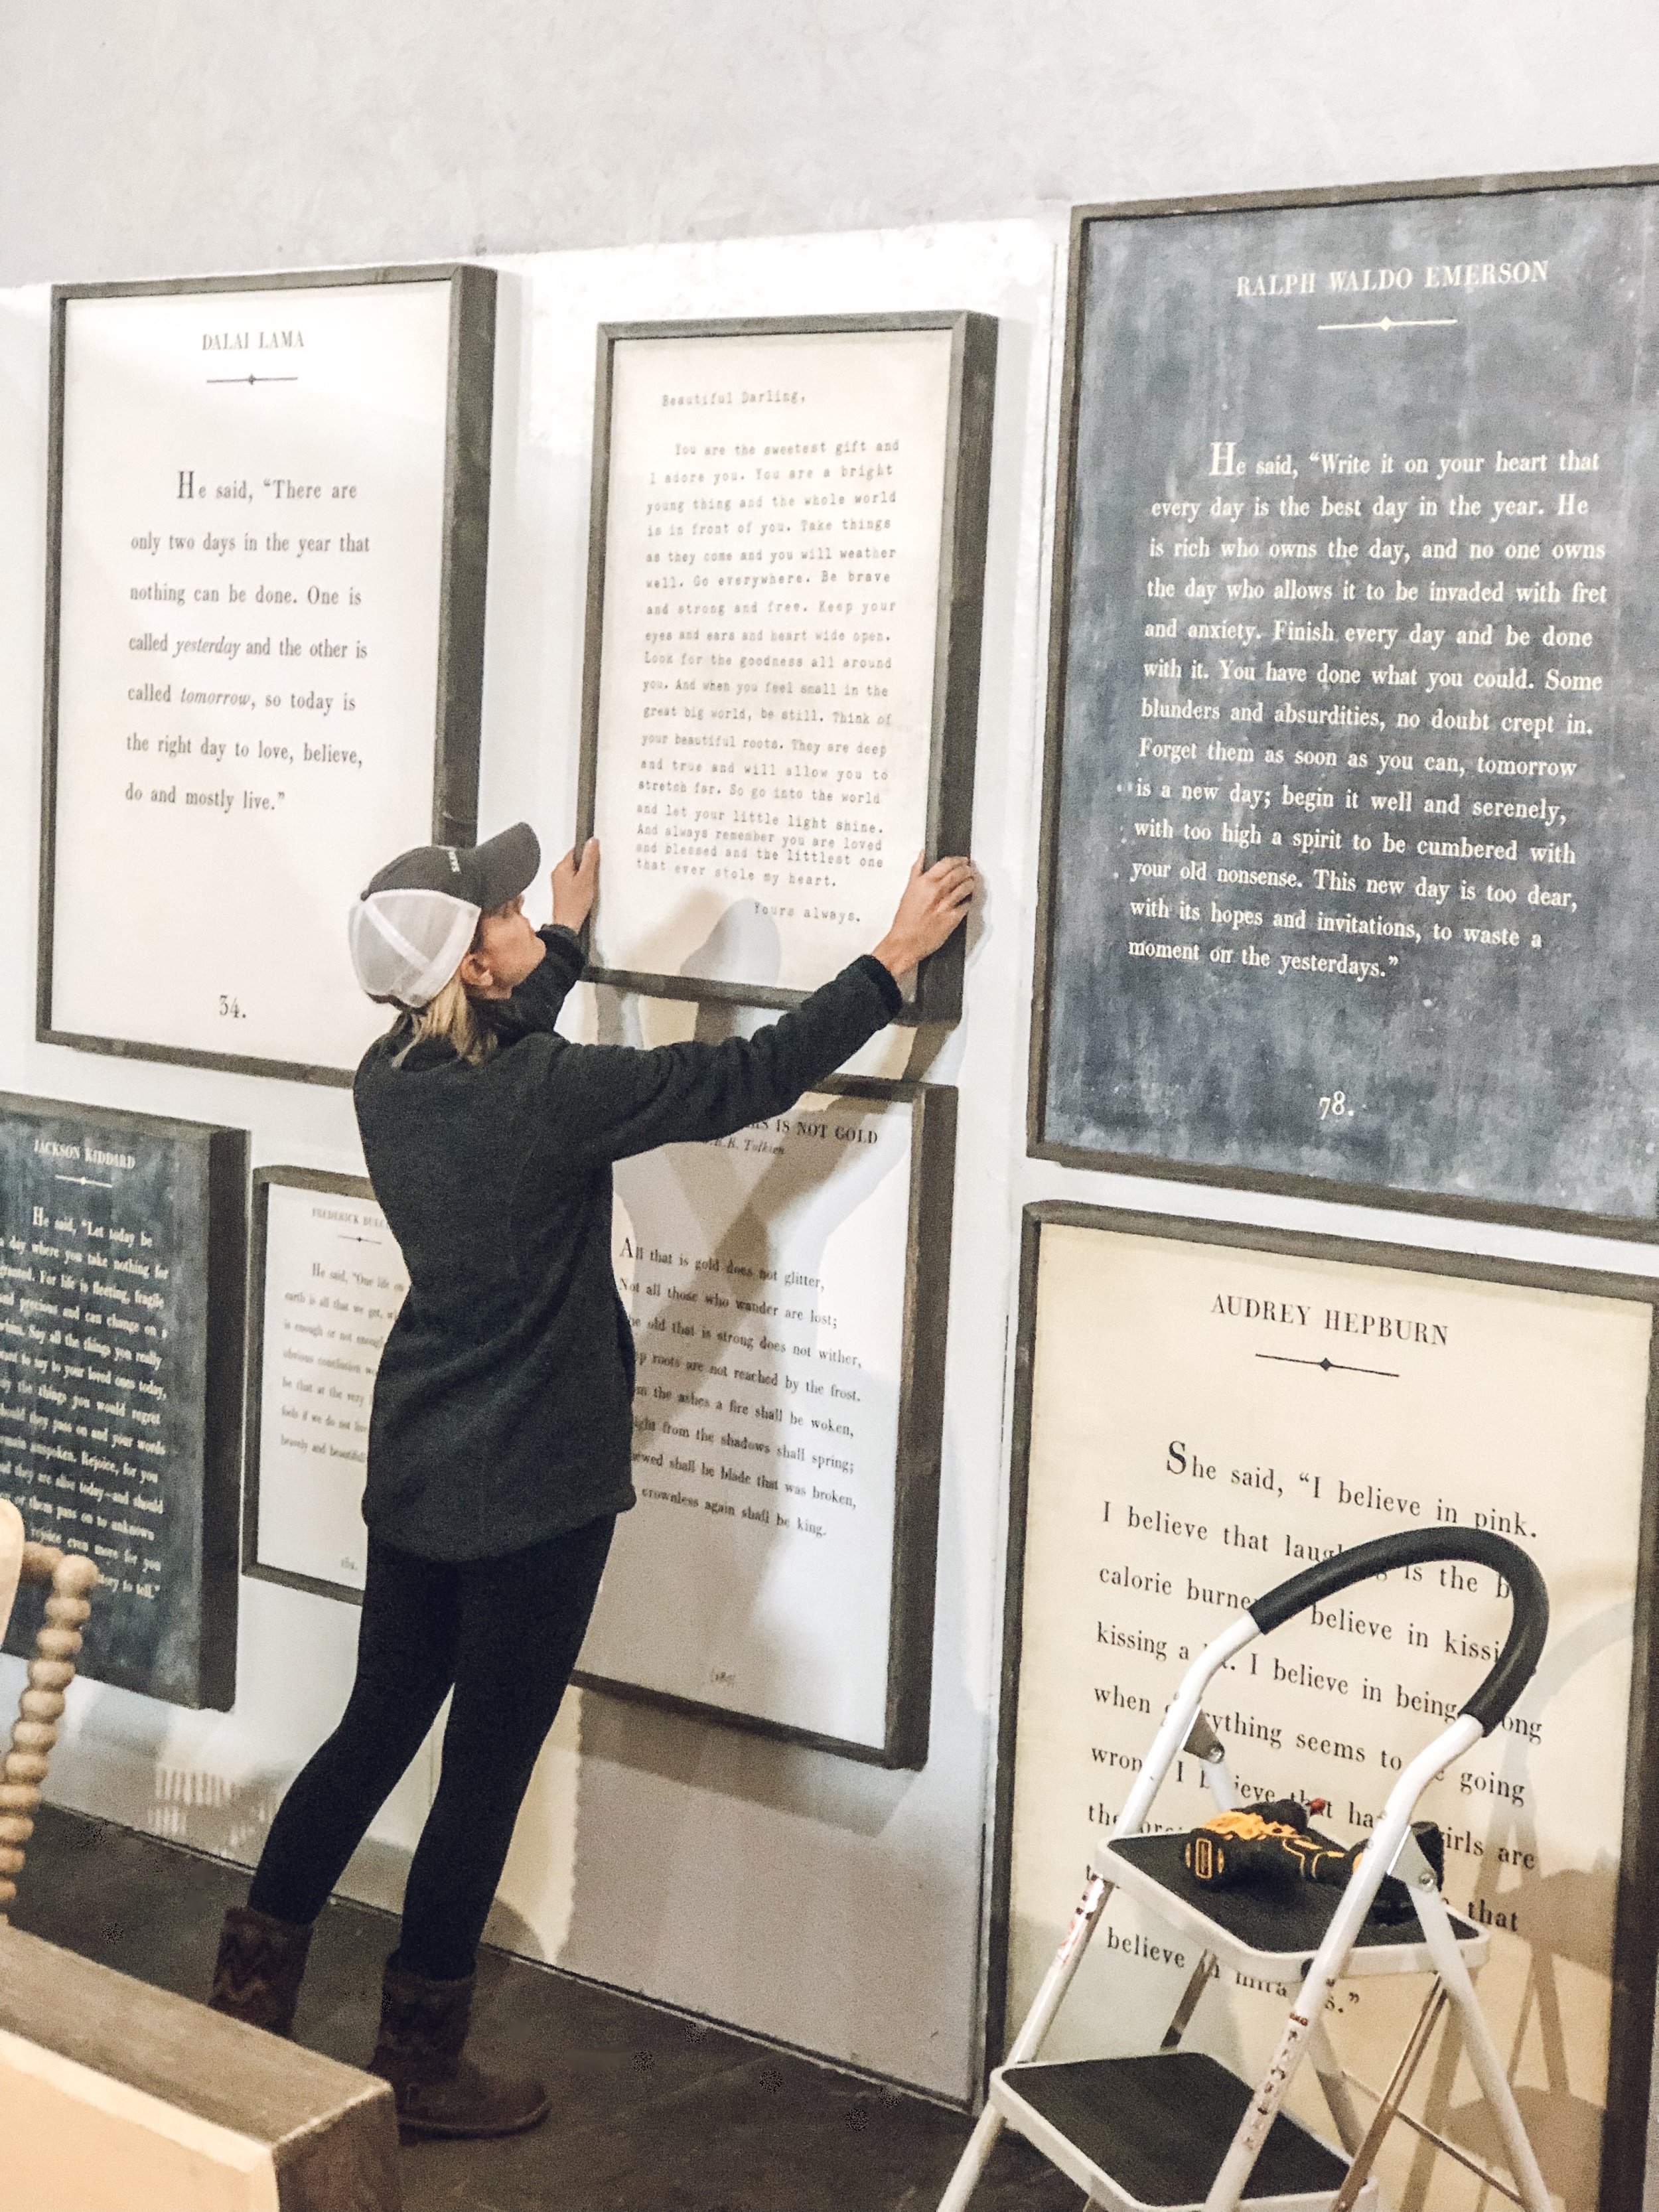 DALAI LAMA
He said, “There are
only two days in the year that
nothing can be done. One is
called yesterday and the other is
called tomorrow, so today is
the right day to love, believe,
do and mostly live.”
34.
Beautiful Darling,
You are the sweetest gift and
I adore you. You are a bright
young thing and the whole world
is in front of you. Take things
as they come and you will weather
well. Go everywhere. Be brave
and strong and free. Keep your
eyes and ears and heart wide open.
Look for the goodness all around
you. And when you feel small in the
great big world, be still. Think of
your beautiful roots. They are deep
and true and will allow you to
stretch far. So go into the world
and let your little light shine.
And always remember you are loved
and blessed and the littlest one
that ever stole my heart.
Yours always.
RALPH WALDO EMERSON
He said, “Write it on your heart that
every day is the best day in the year. He
is rich who owns the day, and no one owns
the day who allows it to be invaded with fret
and anxiety. Finish every day and be done
with it. You have done what you could. Some
blunders and absurdities, no doubt crept in.
Forget them as soon as you can, tomorrow
is a new day; begin it well and serenely,
with too high a spirit to be cumbered with
your old nonsense. This new day is too dear,
with its hopes and invitations, to waste a
moment on the yesterdays.”
78.
JACKSON KIDDARD
He said, “Let today be
a day where you take nothing for
granted. For life is fleeting, fragile
and precious and can change on a
whim. Say all the things you really
want to say to your loved ones today,
say the things you would regret
should they pass on and your words
remain unspoken. Rejoice, for you
and they are alive today—and should
you or them pass on to unknown
rejoice even more for you
story to tell.”
FREDERICK
He said, “One life on
earth is all that we get,
is enough or not enough
obvious conclusion
be that at the very
fools if we do not live
bravely and beautifully
IS NOT GOLD
Tolkien
All that is gold does not glitter,
Not all those who wander are lost;
old that is strong does not wither,
roots are not reached by the frost.
the ashes a fire shall be woken,
from the shadows shall spring;
shall be blade that was broken,
crownless again shall be king.
AUDREY HEPBURN
She said, “I believe in pink.
I believe that is the
calorie believe in
kissing a I believe in being
when seems to going
I that
are
that
believe